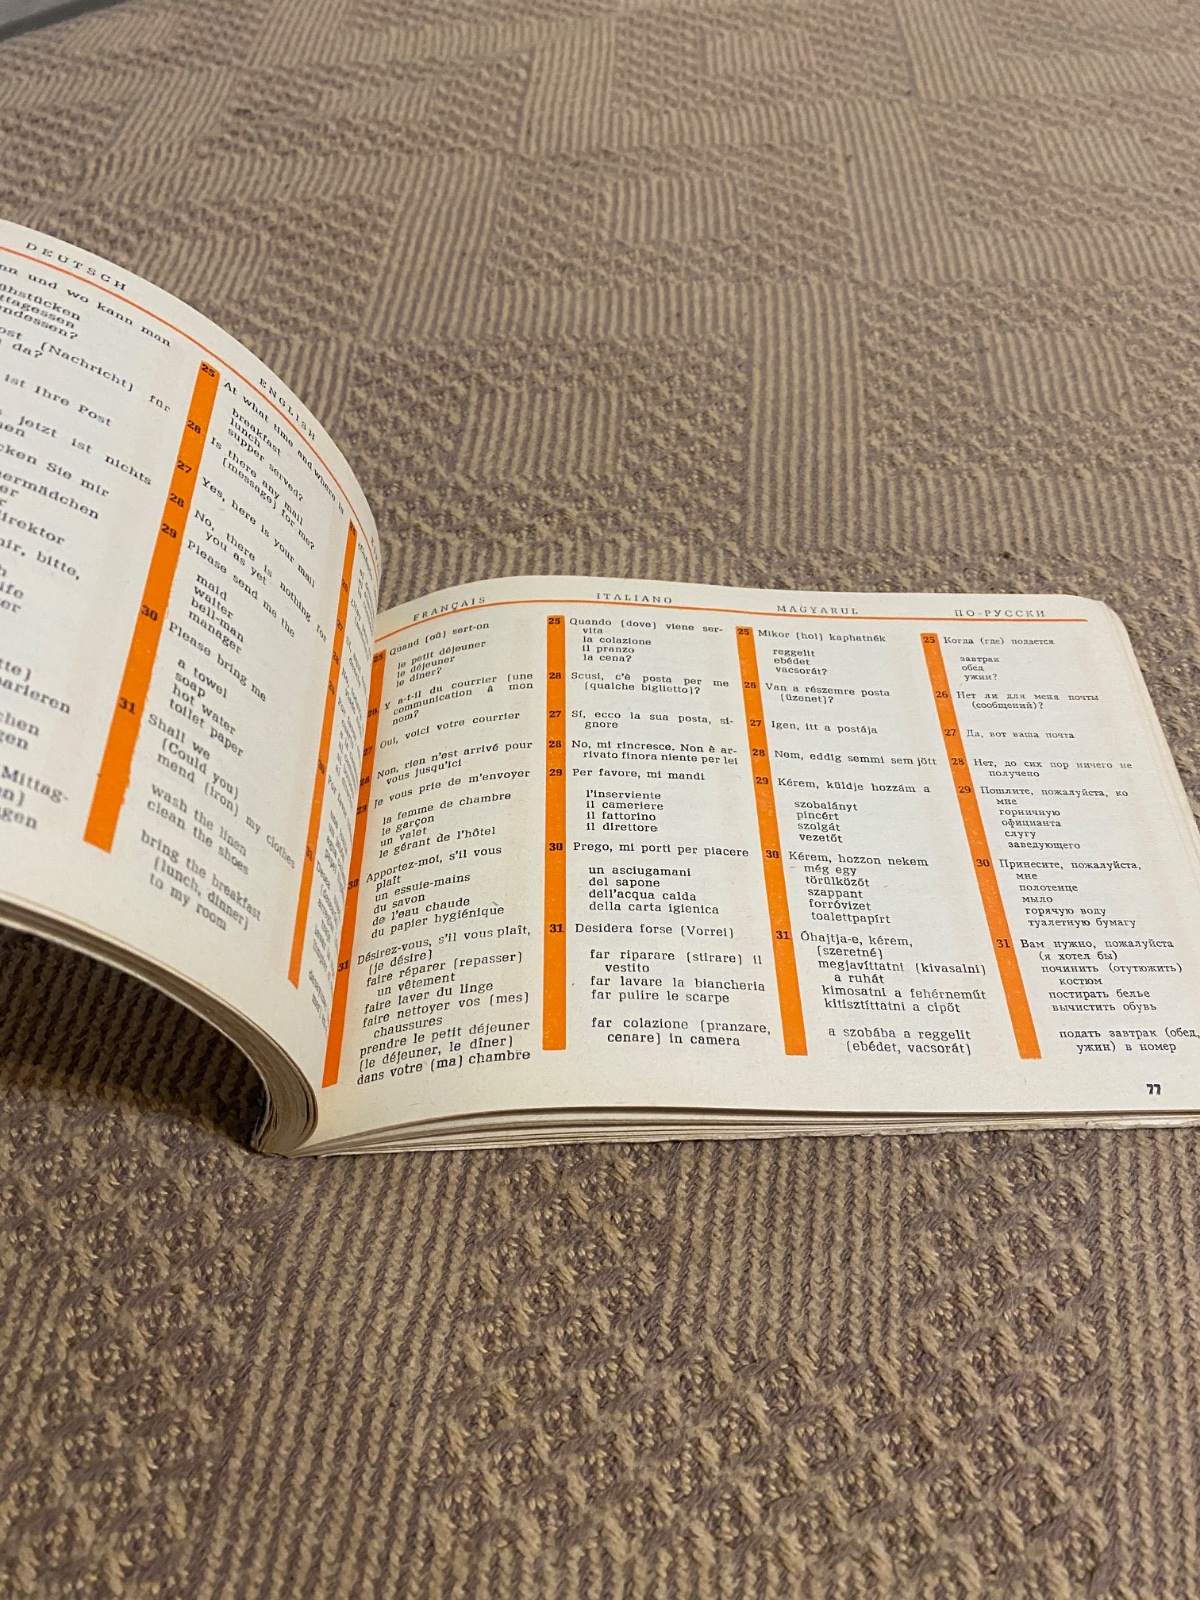 DEUTSCH
und wo kann man
(Nachricht) für
da?
ist Ihre Post
jetzt ist nichts
Sie mir
bitte,
ENGLISH
25 At what time and where is
breakfast
lunch
supper served?
26 Is there any mail
(message) for me?
27 Yes, here is your mail
28 No, there is nothing for
you as yet
29 Please send me the
maid
waiter
bell-man
manager
30 Please bring me
a towel
soap
hot water
toilet paper
31 Shall we
(Could you)
mend (iron) my clothes
wash the linen
clean the shoes
bring the breakfast
(lunch, dinner)
to my room
FRANÇAIS
25 Quand (où) sert-on
le petit déjeuner
le déjeuner
le dîner?
26 Y a-t-il du courrier (une
communication à mon
nom?
27 Oui, voici votre courrier
28 Non, rien n'est arrivé pour
vous jusqu'ici
29 Je vous prie de m'envoyer
la femme de chambre
le garçon
un valet
le gérant de l'hôtel
30 Apportez-moi, s'il vous
plaît
un essuie-mains
du savon
de l'eau chaude
du papier hygiénique
31 Désirez-vous, s'il vous plaît,
(je désire)
faire réparer (repasser)
un vêtement
faire laver du linge
faire nettoyer vos (mes)
chaussures
prendre le petit déjeuner
(le déjeuner, le dîner)
dans votre (ma) chambre
ITALIANO
25 Quando (dove) viene ser-
vita
la colazione
il pranzo
la cena?
26 Scusi, c'è posta per me
(qualche biglietto)?
27 Sí, ecco la sua posta, si-
gnore
28 No, mi rincresce. Non è ar-
rivato finora niente per lei
29 Per favore, mi mandi
l'inserviente
il cameriere
il fattorino
il direttore
30 Prego, mi porti per piacere
un asciugamani
del sapone
dell'acqua calda
della carta igienica
31 Desidera forse (Vorrei)
far riparare (stirare) il
vestito
far lavare la biancheria
far pulire le scarpe
far colazione (pranzare,
cenare) in camera
MAGYARUL
25 Mikor (hol) kaphatnék
reggelit
ebédet
vacsorát?
26 Van a részemre posta
(üzenet)?
27 Igen, itt a postája
28 Nem, eddig semmi sem jött
29 Kérem, küldje hozzám a
szobalányt
pincért
szolgát
vezetőt
30 Kérem, hozzon nekem
még egy
törülközőt
szappant
forróvizet
toalettpapírt
31 Óhajtja-e, kérem,
(szeretné)
megjavíttatni (kivasalni)
a ruhát
kimosatni a fehérneműt
kitisztíttátni a cipőt
a szobába a reggelit
(ebédet, vacsorát)
ПО-РУССКИ
25 Когда (где) подается
завтрак
обед
ужин?
26 Нет ли для меня почты
(сообщений)?
27 Да, вот ваша почта
28 Нет, до сих пор ничего не
получено
29 Пошлите, пожалуйста, ко
мне
горничную
официанта
слугу
заведующего
30 Принесите, пожалуйста,
мне
полотенце
мыло
горячую воду
туалетную бумагу
31 Вам нужно, пожалуйста
(я хотел бы)
починить (отутюжить)
костюм
постирать белье
вычистить обувь
подать завтрак (обед,
ужин) в номер
77